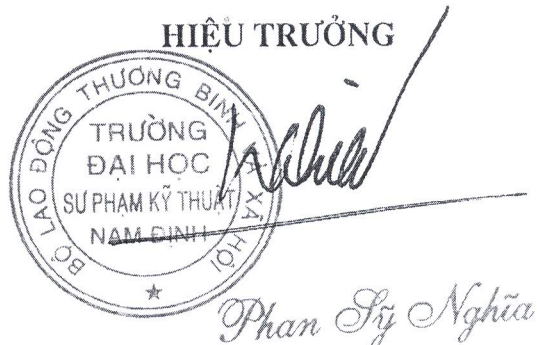 HIỆU TRƯỞNG
BỘ LAO ĐỘNG THƯƠNG BINH VÀ XÃ HỘI
TRƯỜNG
ĐẠI HỌC
SƯ PHẠM KỸ THUẬT
NAM ĐỊNH
Phan Sỹ Nghĩa